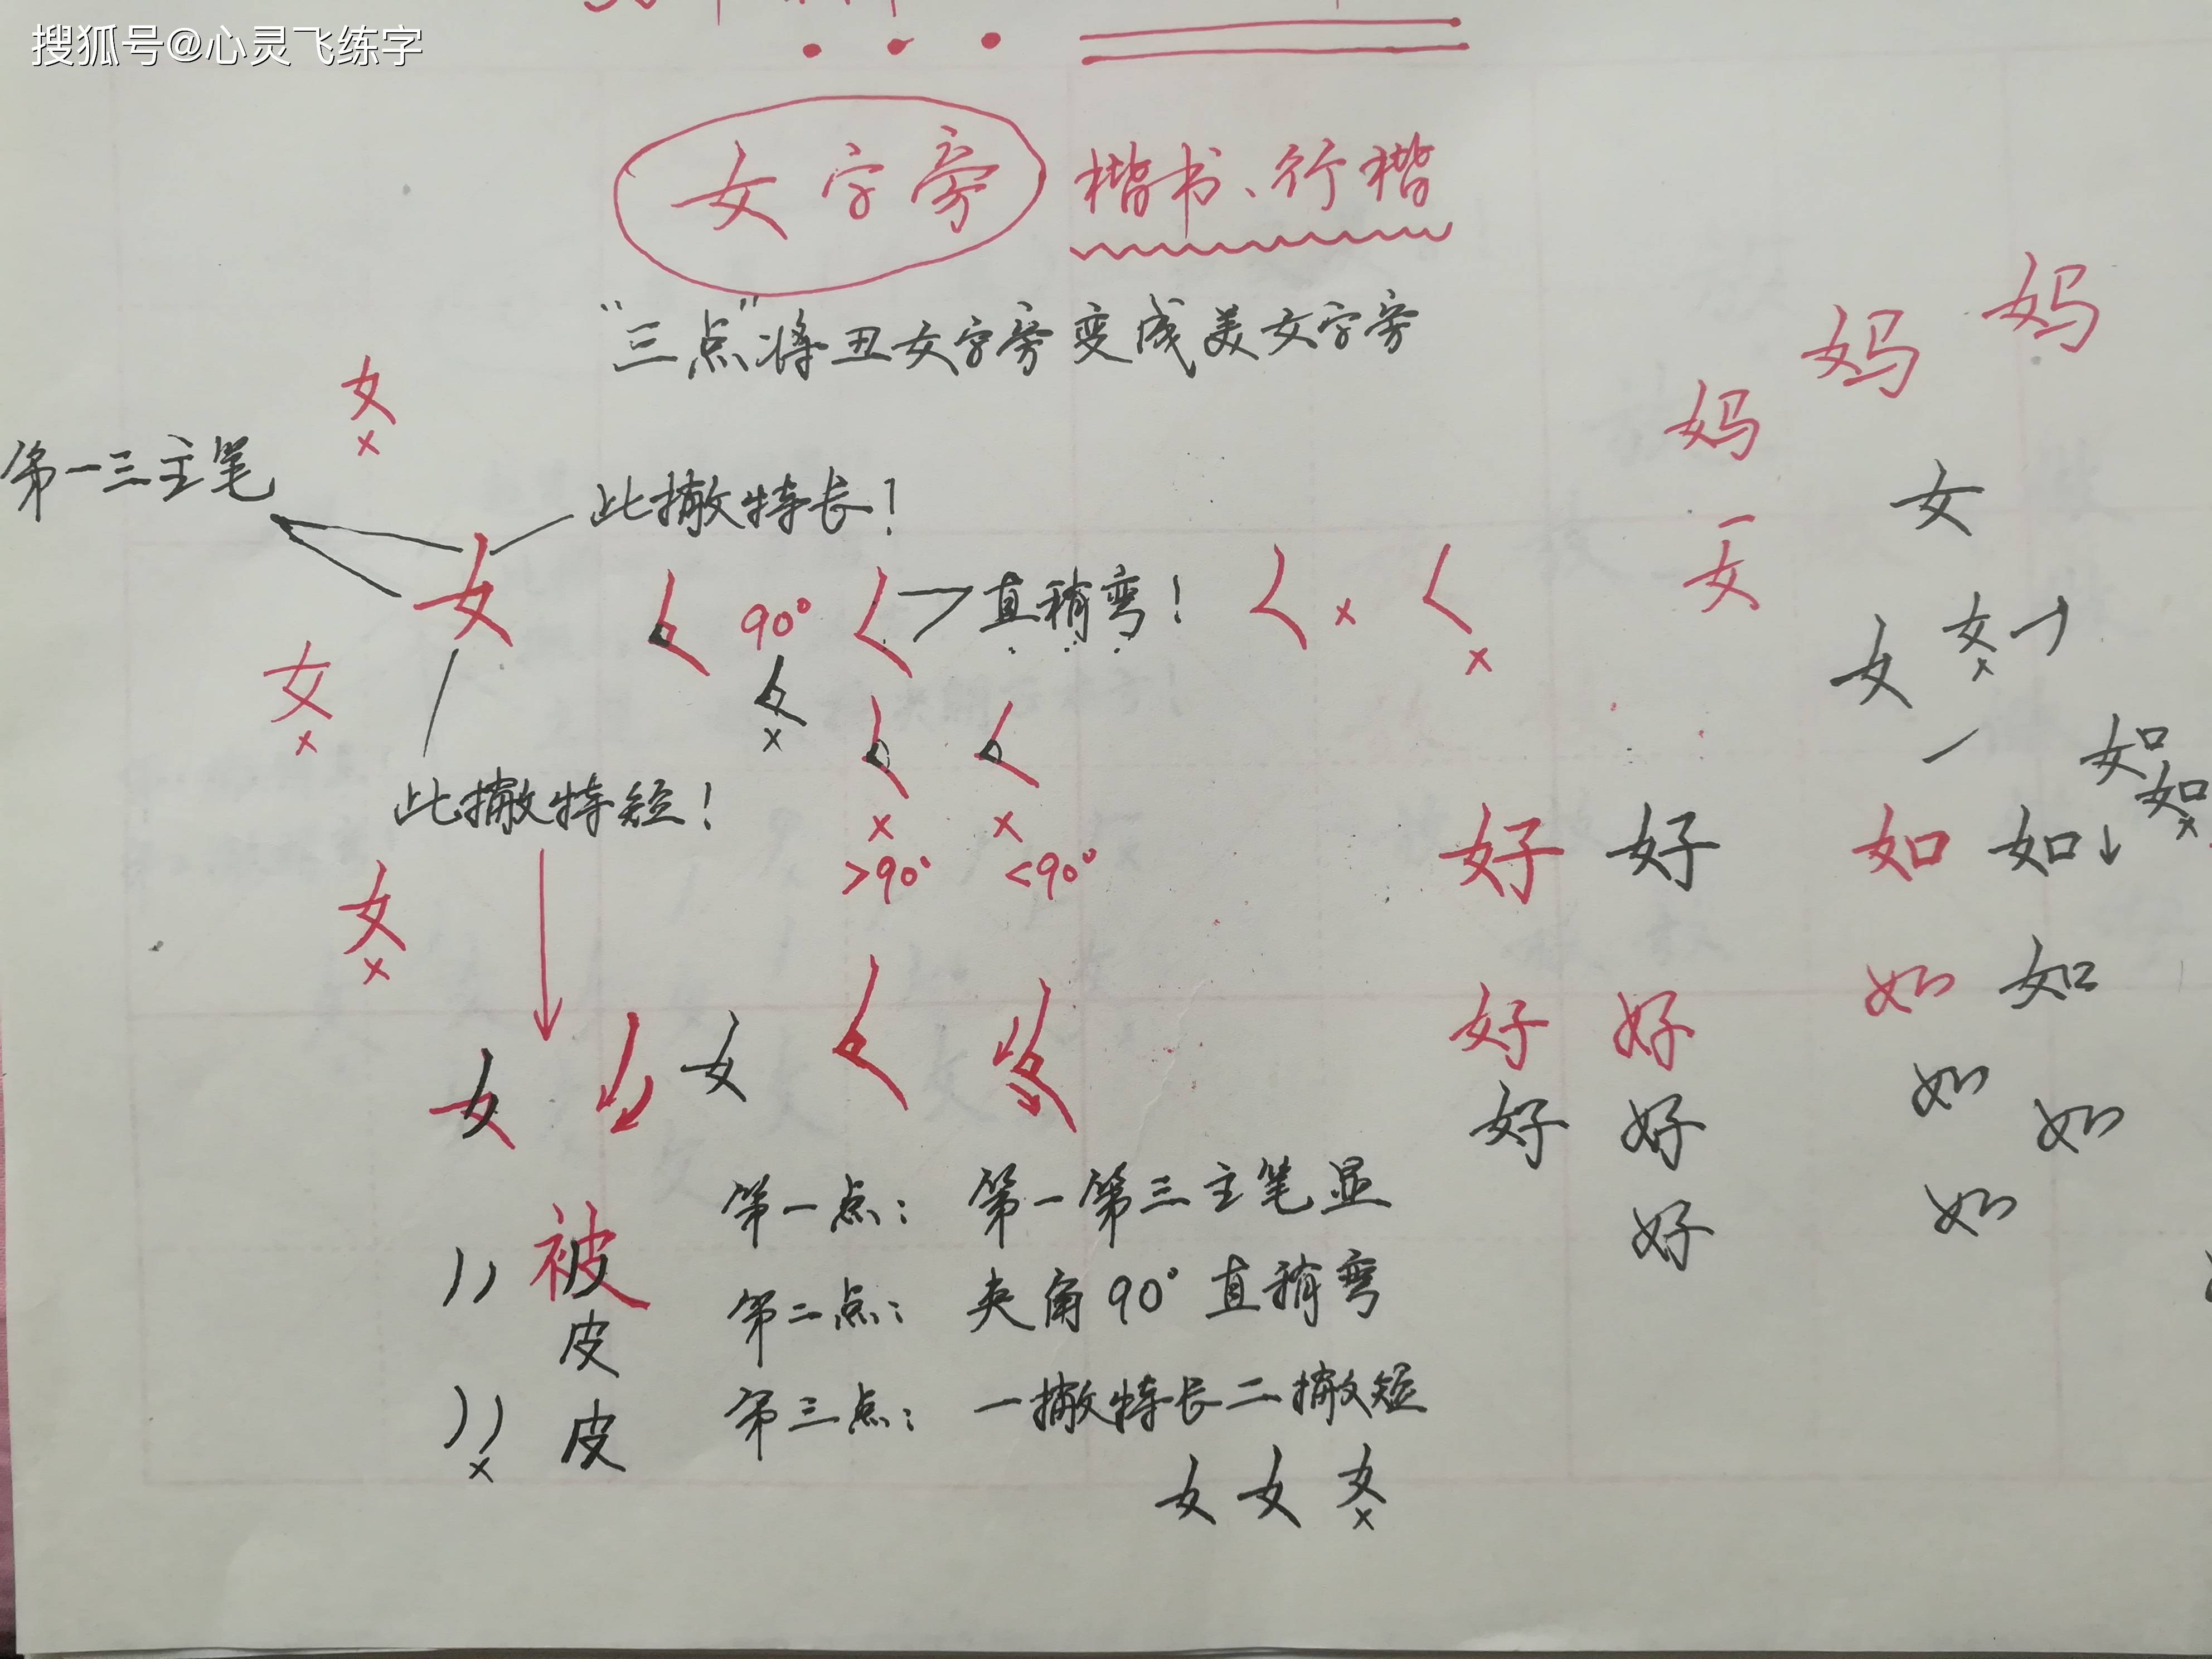 搜狐号@心灵飞练字
女字旁 楷书、行楷
"三点"将丑女字旁变成美女字旁
妈 妈
妈
女
×
第一三主笔
此撇特长!
女
女
女
90°
直稍弯!
×
×
女
女
×
女
×
女
×
此撇特短!
×
>90°
×
<90°
如
如
×
好 好 如 如
女
×
女 女
好 好 如 如
好 好 如 如
好 如
被
皮
皮
×
第一点: 第一第三主笔显
第二点: 夹角90°直稍弯
第三点: 一撇特长二撇短
女 女 女
×